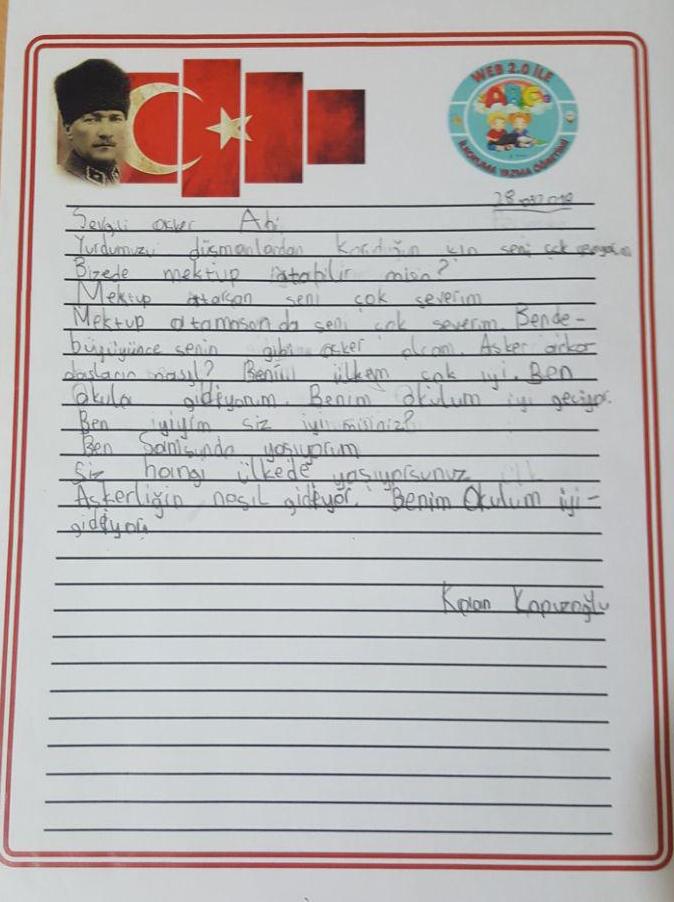 WEB 2.0 İLE
ABC
İLKOKUMA YAZMA ÖĞRETİMİ
Sevgili asker Abi
Yurdumuzu düşmanlardan koruduğun için seni çok
Bizede mektup atabilir misin?
Mektup atarsan seni çok severim
Mektup atamasanda seni çok severim. Bende-
büyüyünce senin gibi asker olcam. Asker arkar
daşların nasıl? Benim ülkem çok iyi. Ben
Okula gidiyorum. Benim Okulum iyi geciyor.
Ben iyiyim siz iyi misiniz?
Ben Samsunda yaşıyorum
Siz hangi ülkede yaşıyorsunuz
Askerliğin nasıl gidiyor. Benim Okulum iyi-
gidiyor.
Kapuzoğlu